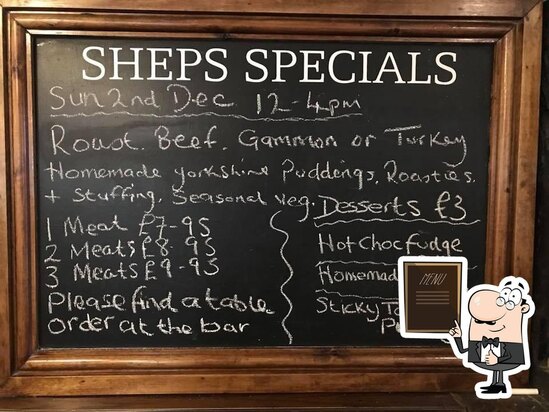 SHEPS SPECIALS
Sun 2nd Dec 12-4pm
Roast. Beef. Gammon or Turkey
Homemade Yorkshire Puddings, Roasties,
+ Stuffing, Seasonal veg.
1 Meat £7-95
2 Meats £8-95
3 Meats £9-95
Please find a table
order at the bar
Desserts £3
Hot Choc fudge
Homemad
Sticky To
MENU